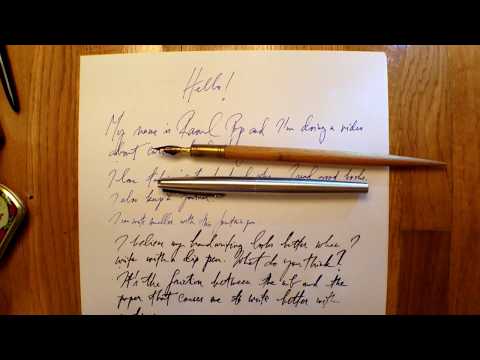 Hello!
My name is Raoul Pop and I'm doing a video
about
I love
I also keep a
I can write smaller with the fountain pen
I believe my handwriting looks better when I
write with a dip pen. What do you think?
It's the friction between the nib and the
paper that causes me to write better with